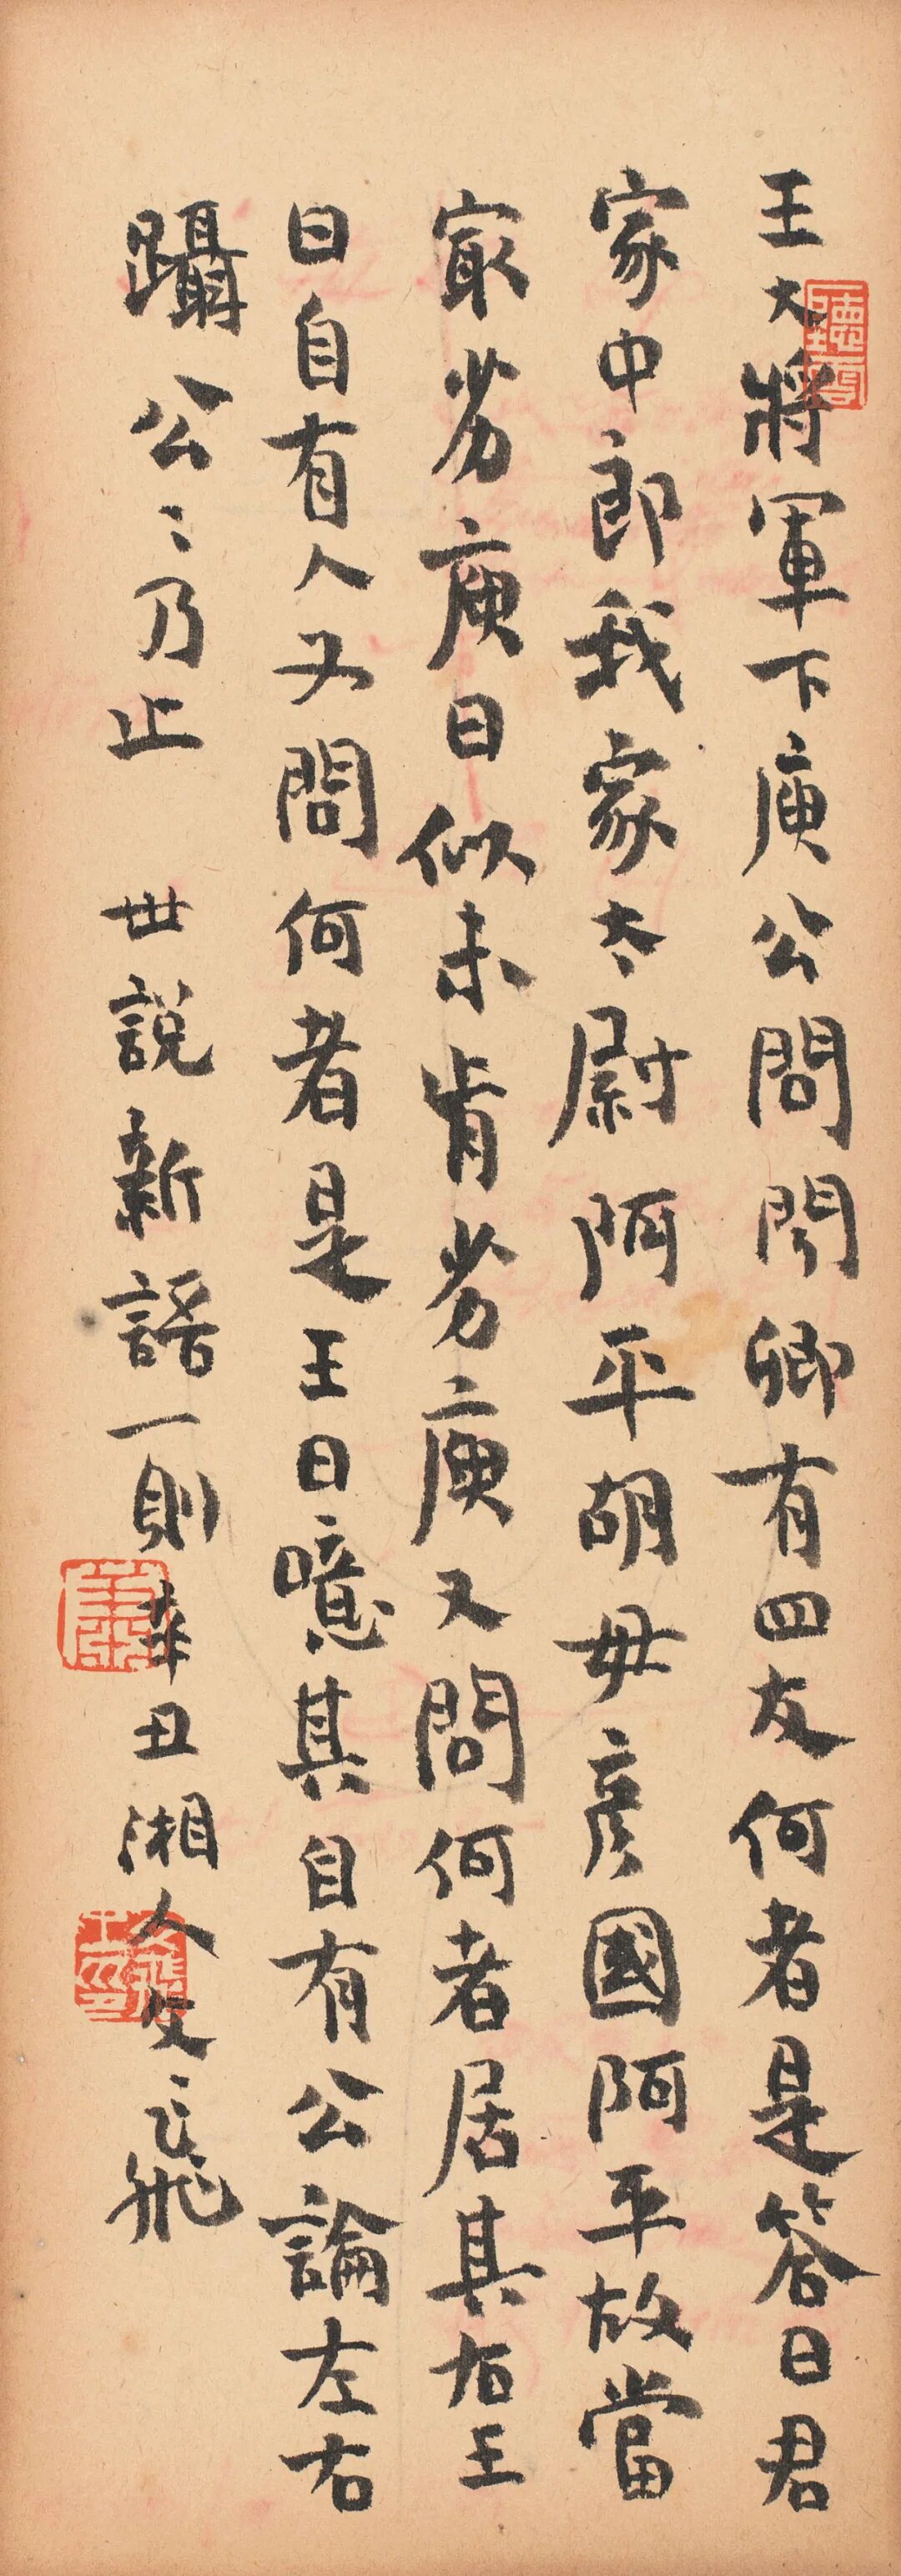 王大將軍下庾公問聞卿有四友何者是答曰君
家中郎我家太尉阿平胡毋彥國阿平故當
最劣庾曰似未肯劣庾又問何者居其右王
曰自有人又問何者是王曰噫其自有公論左右
躡公〻乃止　世說新語一則辛丑湘人飛